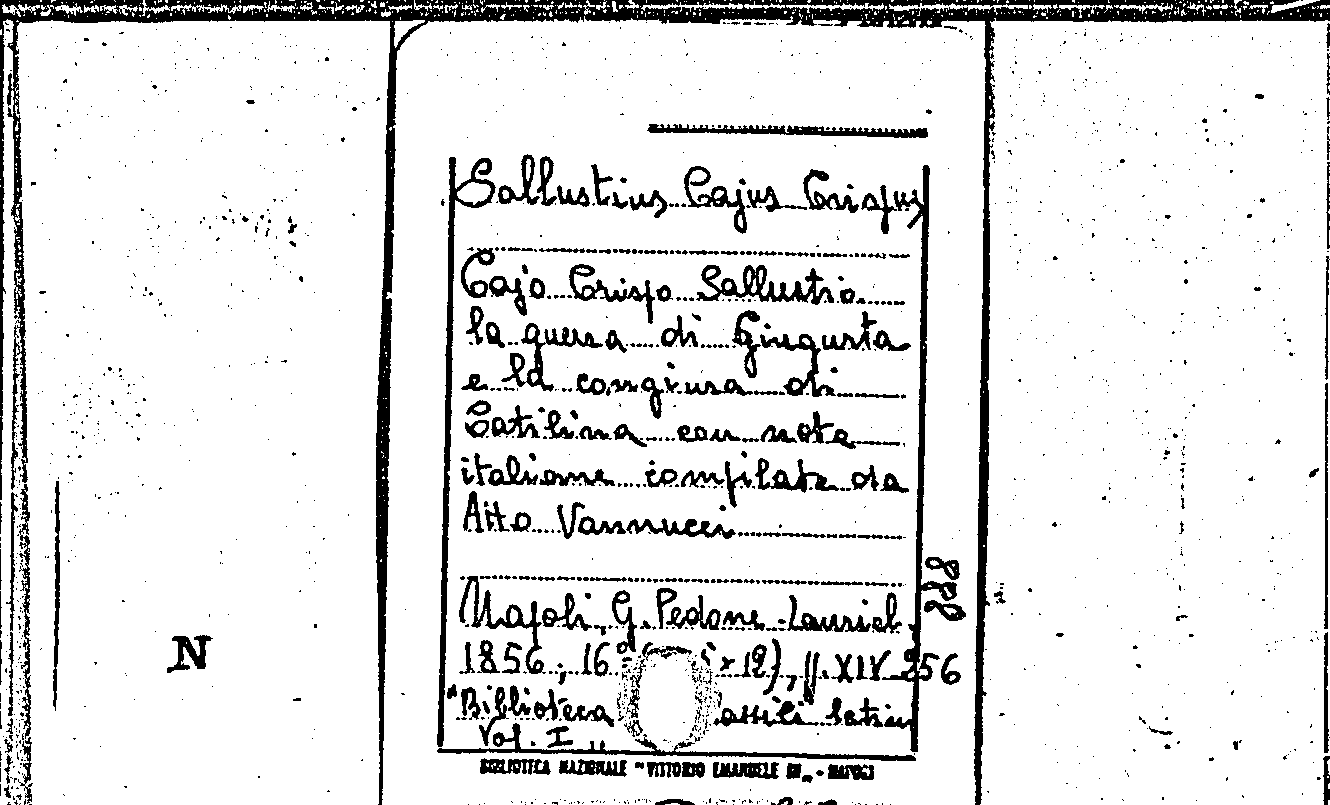 Sallustius Cajus Crispus
Cajo Crispo Sallustio
la guerra di Giugurta
e la congiura di
Catilina con note
italiane compilate da
Atto Vannucci
Napoli, G. Pedone-Lauriel,
1856, 16° × 12), pp. XIV-256
"Biblioteca latini
Vol. I"
N
BIBLIOTECA NAZIONALE "VITTORIO EMANUELE III" - NAPOLI